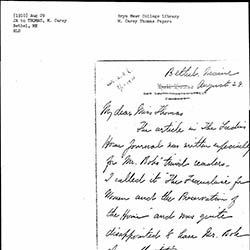 [1910] Aug 29
JA to THOMAS, M. Carey
Bethel, ME
HLS
Bryn Mawr College Library
M. Carey Thomas Papers
Bethel, Maine
August 29
My dear Miss Thomas
The article in The Ladies
Home Journal was written especially
for Mr. Bok's timid readers.
I called it The Franchise for
Women and the Preservation of
the Home and was quite
disappointed to have Mr. Bok